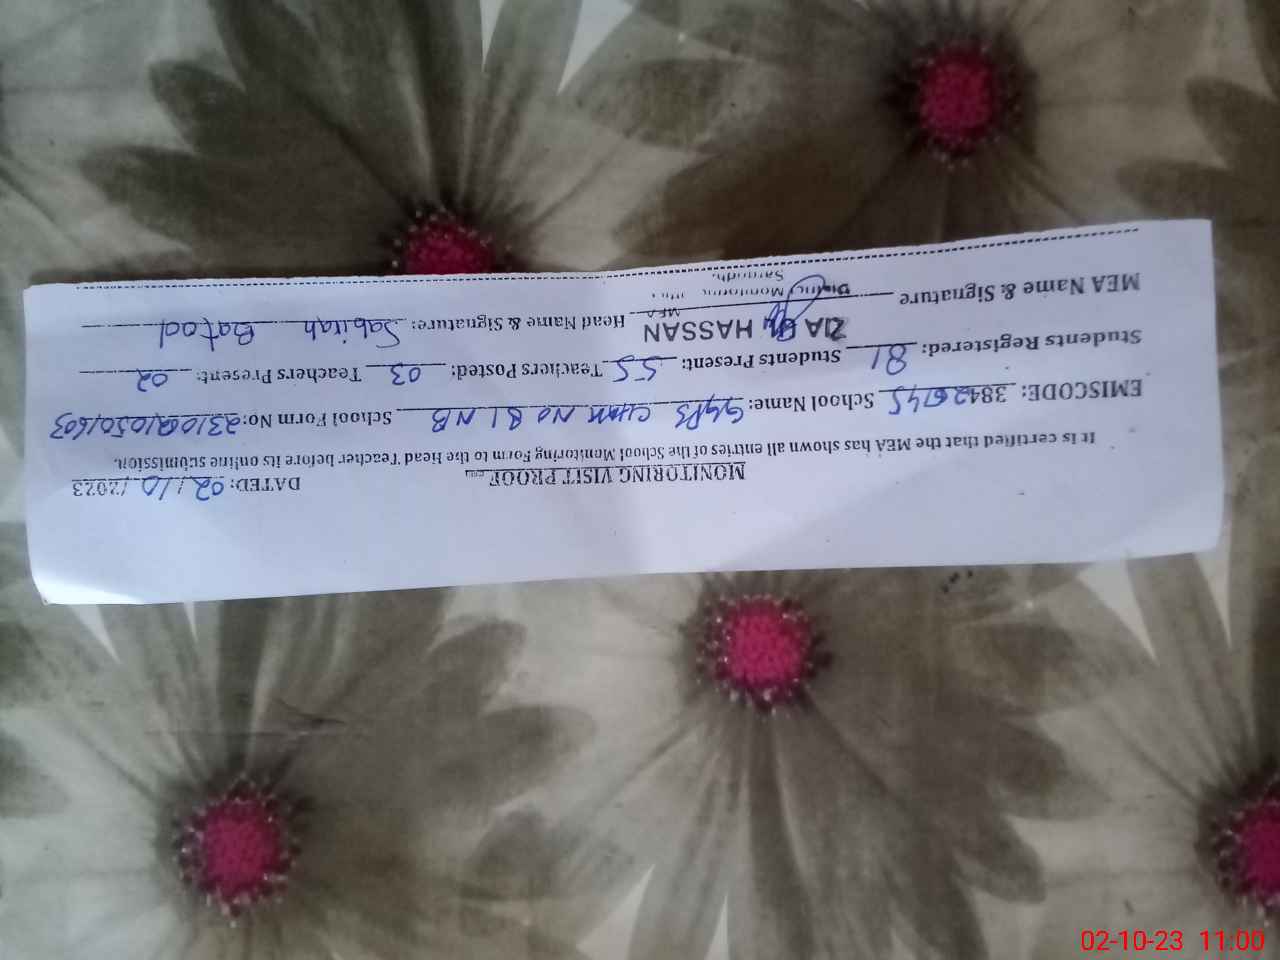 MONITORING VISIT PROOF
DATED: 02/10/2023
It is certified that the MEA has shown all entries of the School Monitoring Form to the Head Teacher before its online submission.
EMISCODE: 384 School Name: GGPS CHAK NO 81 NB School Form No: 23100210501603
Students Registered: 81 Students Present: 55 Teachers Posted: 03 Teachers Present: 02
ZIA HASSAN
MEA Name & Signature Head Name & Signature: Sabirah Batool
MEA
District Monitoring
02-10-23 11:00